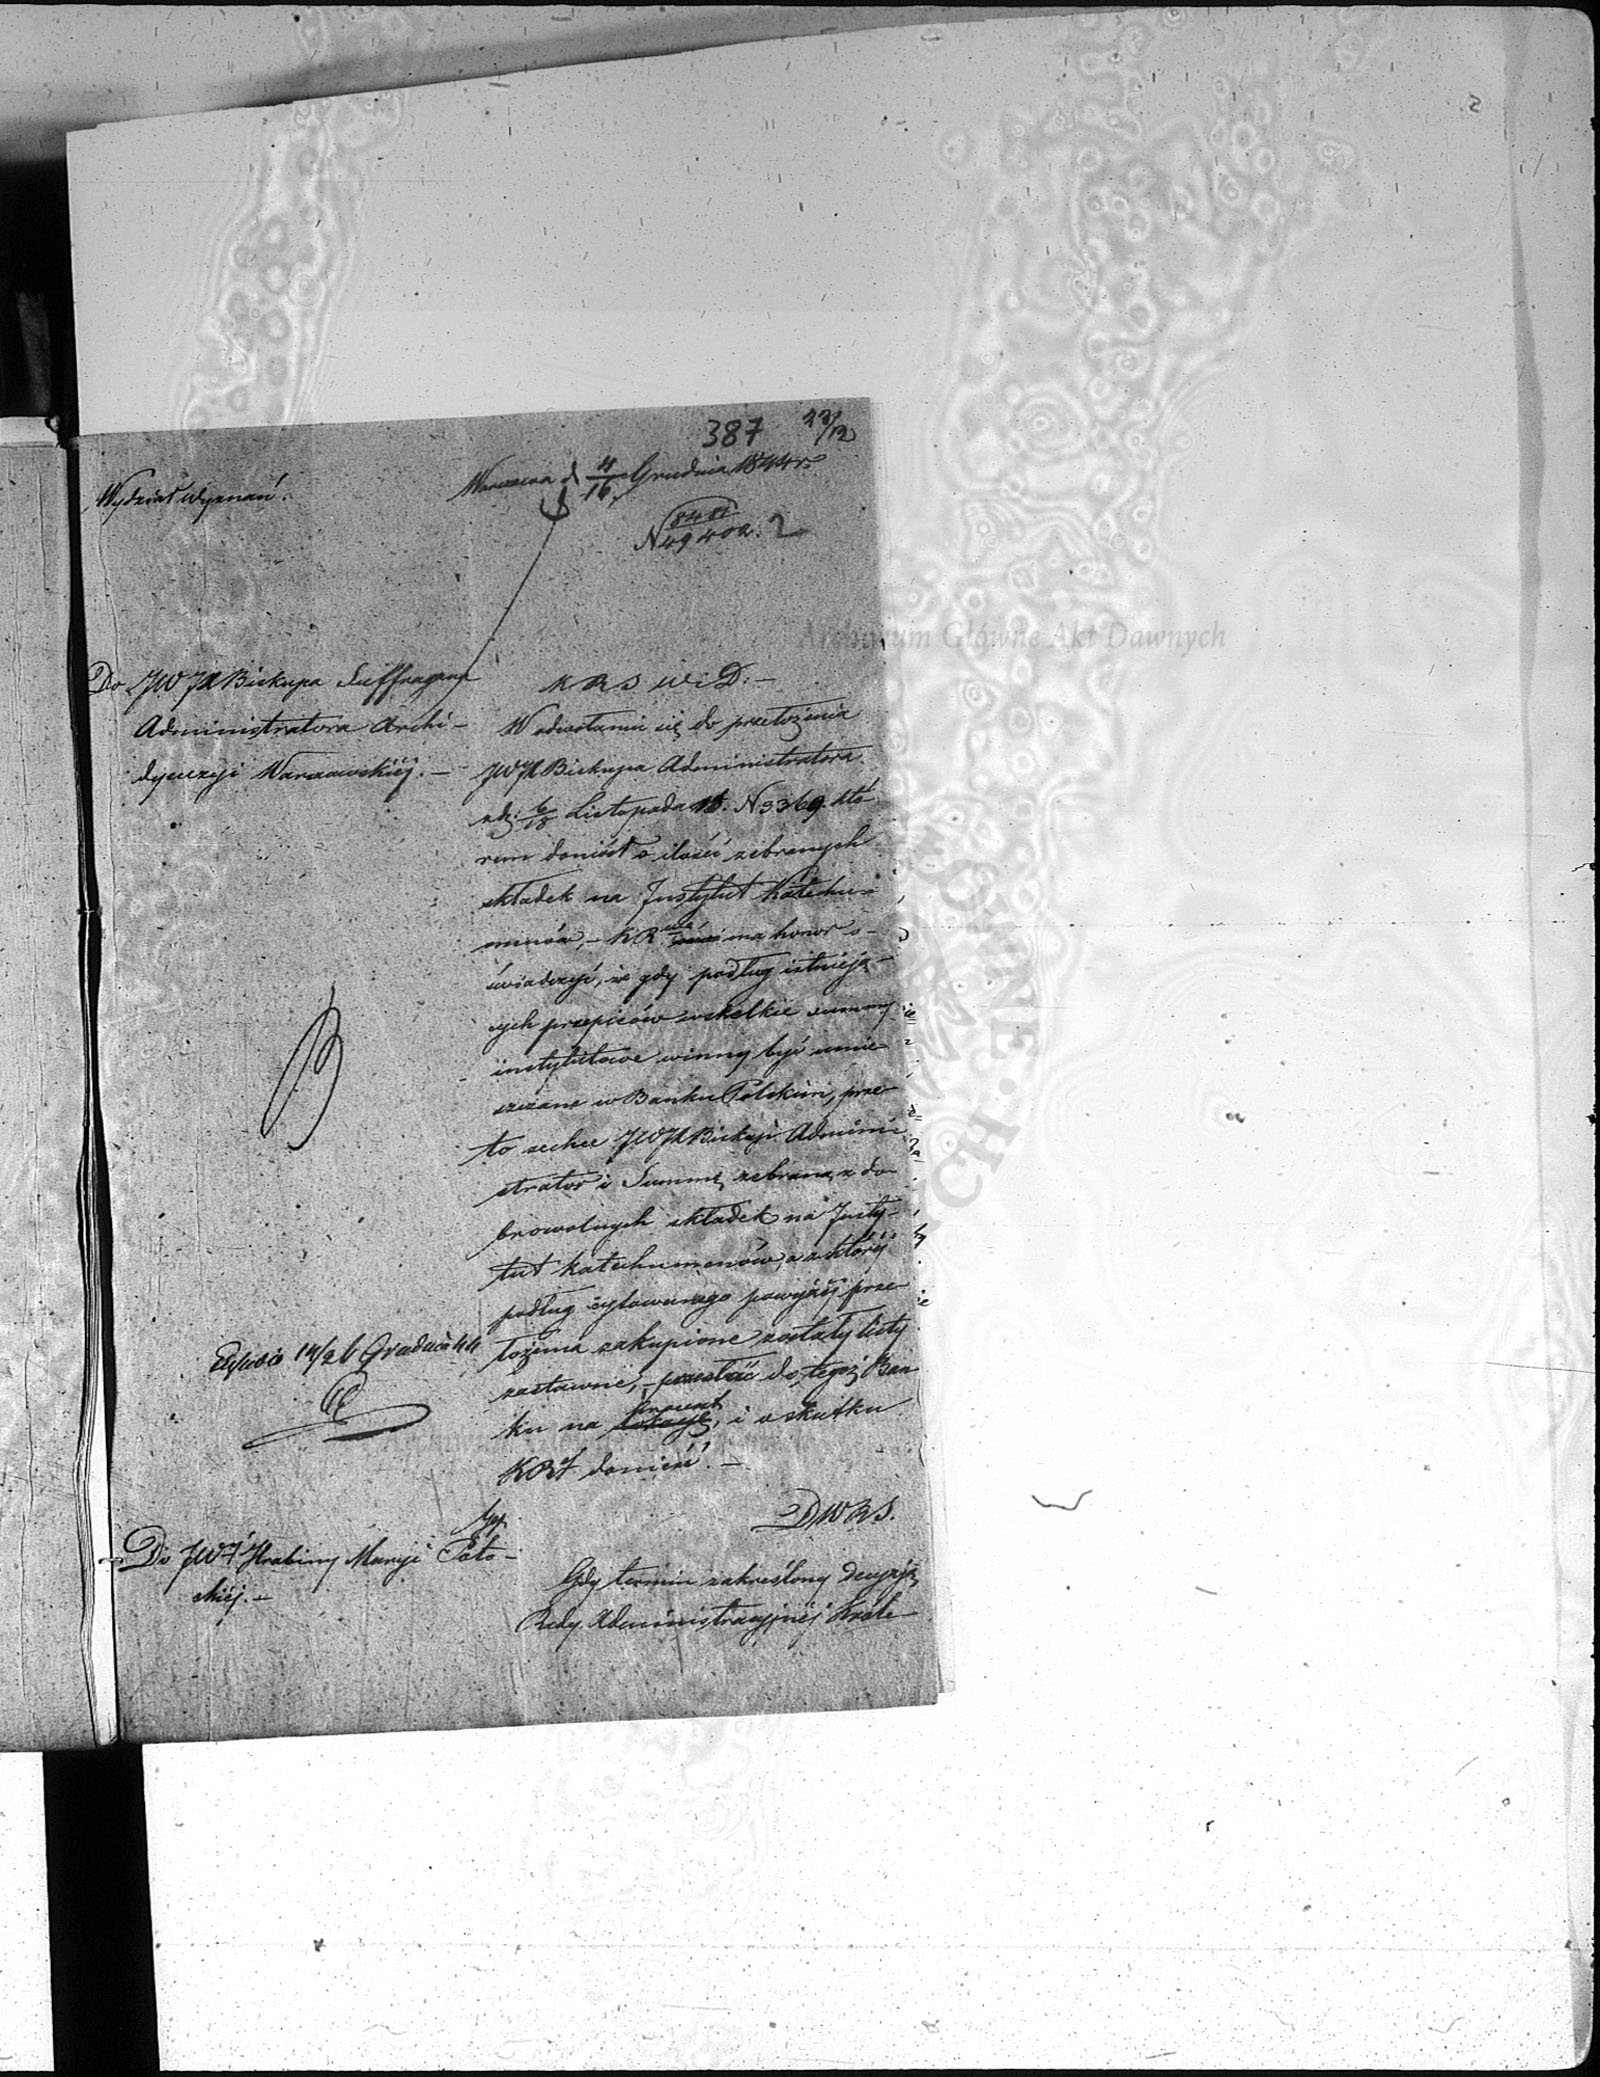 387
23/12
Wydział Wyznań.
Warszawa d 4/16 Grudnia 1844 r.
N 8481
49402.
Do JWJX Biskupa Suffragana
Administratora Archi-
dyecezyi Warszawskiéj. –
KRSWiD. –
W odwołaniu się do przełożenia
JWJX Biskupa Administratora
z d. 6/18 Listopada N 3369. któ-
rem doniósł o ilości zebranych
składek na Instytut Katechu-
menów, – KR ma honor o-
świadczyć, że gdy podług istnieją-
cych przepisów wszelkie summy
instytutowe winny być umie-
szczane w Banku Polskim, prze-
to zechce JWJX Biskup Admini-
strator i Summę zebraną z do-
browolnych składek na Insty-
tut Katechumenów, a za którą
podług cytowanego powyżéj prze-
łożenia zakupione zostały listy
zastawne, – przesłać do tegoż Ban-
ku na lokacyę procent, i o skutku
KRJ donieść. –
14/26 Grudnia 44
DWRS.
Do JWJ Hrabiny Maryi Poto-
ckiéj. –
Gdy termin zakreślony decyzyą
Rady Administracyjnéj Króle-
Archiwum Główne Akt Dawnych